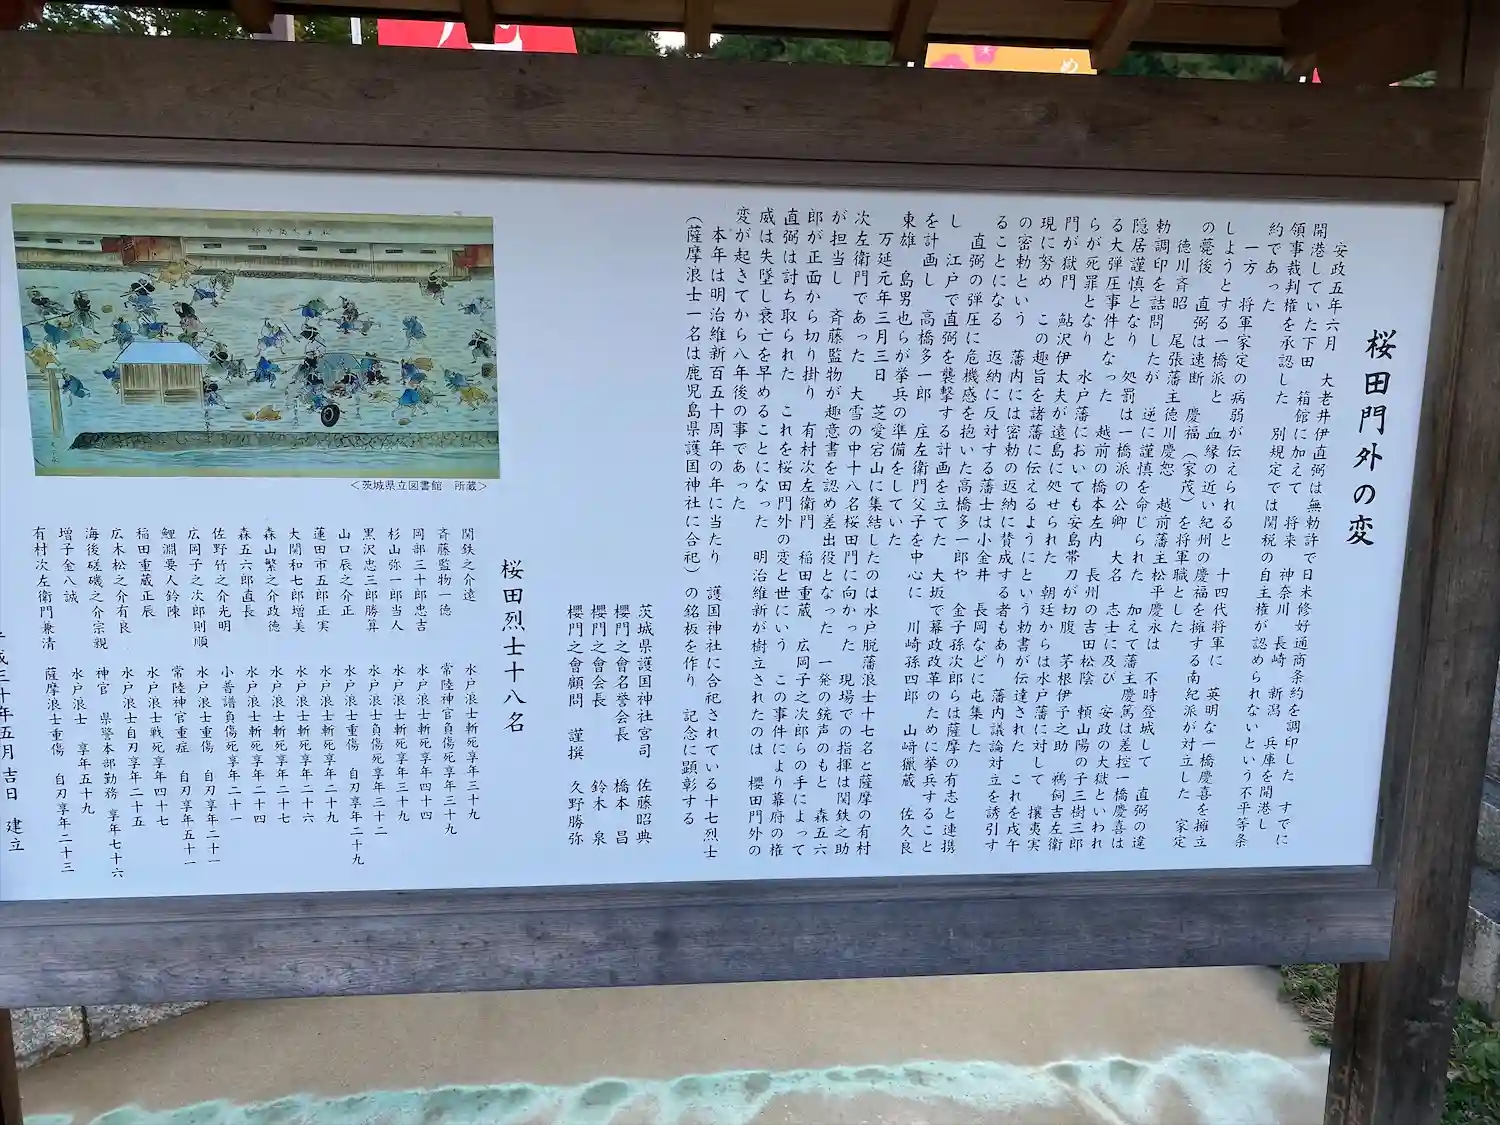 桜田門外の変
安政五年六月　大老井伊直弼は無勅許で日米修好通商条約を調印した　すでに
開港していた下田　箱館に加えて　将来　神奈川　長崎　新潟　兵庫を開港し
領事裁判権を承認した　別規定では関税の自主権が認められないという不平等条
約であった
一方　将軍家定の病弱が伝えられると　十四代将軍に　英明な一橋慶喜を擁立
しようとする一橋派と　血縁の近い紀州の慶福を擁する南紀派が対立した　家定
の薨後　直弼は速断　慶福（家茂）を将軍職とした
徳川斉昭　尾張藩主徳川慶恕　越前藩主松平慶永は　不時登城して　直弼の違
勅調印を詰問したが　逆に謹慎を命じられた　加えて藩主慶篤は差控一橋慶喜は
隠居謹慎となり　処罰は一橋派の公卿　大名　志士に及び　安政の大獄といわれ
る大弾圧事件となった　越前の橋本左内　長州の吉田松陰　頼山陽の子三樹三郎
らが死罪となり　水戸藩においても安島帯刀が切腹　茅根伊予之助　鵜飼吉左衛
門が獄門　鮎沢伊太夫が遠島に処せられた　朝廷からは水戸藩に対して　攘夷実
現に努め　この趣旨を諸藩に伝えるようにという勅書が伝達された　これを戊午
の密勅という　藩内には密勅の返納に賛成する者もあり　藩内議論対立を誘引す
ることになる　返納に反対する藩士は小金井　長岡などに屯集した
直弼の弾圧に危機感を抱いた高橋多一郎や　金子孫次郎らは薩摩の有志と連携
し　江戸で直弼を襲撃する計画を立てた　大坂で幕政改革のために挙兵すること
を計画し　高橋多一郎　庄左衛門父子を中心に　川崎孫四郎　山崎獵蔵　佐久良
東雄　島男也らが挙兵の準備をしていた
万延元年三月三日　芝愛宕山に集結したのは水戸脱藩浪士十七名と薩摩の有村
次左衛門であった　大雪の中十八名桜田門に向かった　現場での指揮は関鉄之助
が担当し　斉藤監物が趣意書を認め差出役となった　一発の銃声のもと　森五六
郎が正面から切り掛り　有村次左衛門　稲田重蔵　広岡子之次郎らの手によって
直弼は討ち取られた　これを桜田門外の変と世にいう　この事件により幕府の権
威は失墜し衰亡を早めることになった　明治維新が樹立されたのは　櫻田門外の
変が起きてから八年後の事であった
本年は明治維新百五十周年の年に当たり　護国神社に合祀されている十七烈士
（薩摩浪士一名は鹿児島県護国神社に合祀）の銘板を作り　記念に顕彰する
茨城県護国神社宮司　佐藤昭典
櫻門之會名誉会長　橋本　昌
櫻門之會会長　鈴木　泉
櫻門之會顧問　謹撰　久野勝弥
＜茨城県立図書館　所蔵＞
桜田烈士十八名
関鉄之介遠　水戸浪士斬死享年三十九
斉藤監物一徳　常陸神官負傷死享年三十九
岡部三十郎忠吉　水戸浪士斬死享年四十四
杉山弥一郎当人　水戸浪士斬死享年三十九
黒沢忠三郎勝算　水戸浪士負傷死享年三十二
山口辰之介正　水戸浪士重傷　自刃享年二十九
蓮田市五郎正実　水戸浪士斬死享年二十九
大関和七郎増美　水戸浪士斬死享年二十六
森山繁之介政徳　水戸浪士斬死享年二十七
森五六郎直長　水戸浪士斬死享年二十四
佐野竹之介光明　小普請負傷死享年二十一
広岡子之次郎則順　水戸浪士重傷　自刃享年二十一
鯉淵要人鈴陳　常陸神官重症　自刃享年五十一
稲田重蔵正辰　水戸浪士戦死享年四十七
広木松之介有良　水戸浪士自刃享年二十五
海後磋磯之介宗親　神官　県警本部勤務　享年七十六
増子金八誠　水戸浪士　享年五十九
有村次左衛門兼清　薩摩浪士重傷　自刃享年二十三
成三十年五月吉日　建立